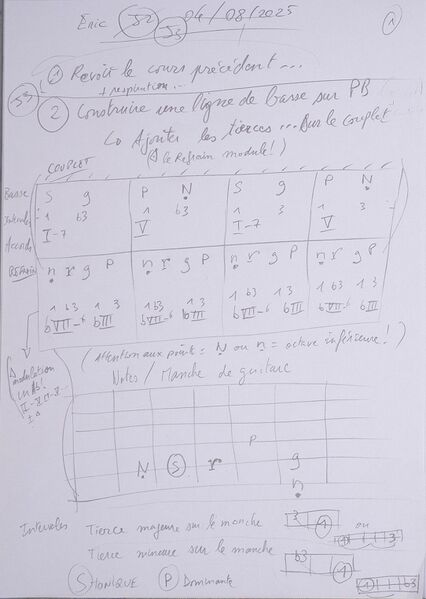 Eric J2 04/08/2025 ①
J3
① Revoir le cours précédent...
+ respiration
J3
② Construire une ligne de basse sur PB
↳ Ajouter les tierces... Sur le couplet
(⚠ le Refrain module!)
COUPLET
Basse S g P Ṇ S g P Ṇ
Intervalles 1 b3 1 b3 1 3 1 3
Accords I-7 V I-7 V
REFRAIN ṇ r g P ṇ r g P ṇ r g P ṇ r g P
1 b3 1 3 1 b3 1 3 1 b3 1 3 1 b3 1 3
bVII-6 bIII bVII-6 bIII bVII-6 bIII bVII-6 bIII
modulation
(Attention aux points = Ṇ ou ṇ = octave inférieure!)
Notes / Manche de guitare
P
N S r g
ṇ
Intervalles Tierce majeure sur le manche 3 1 ou 1 3
Tierce mineure sur le manche b3 1 1 b3
S TONIQUE P Dominante